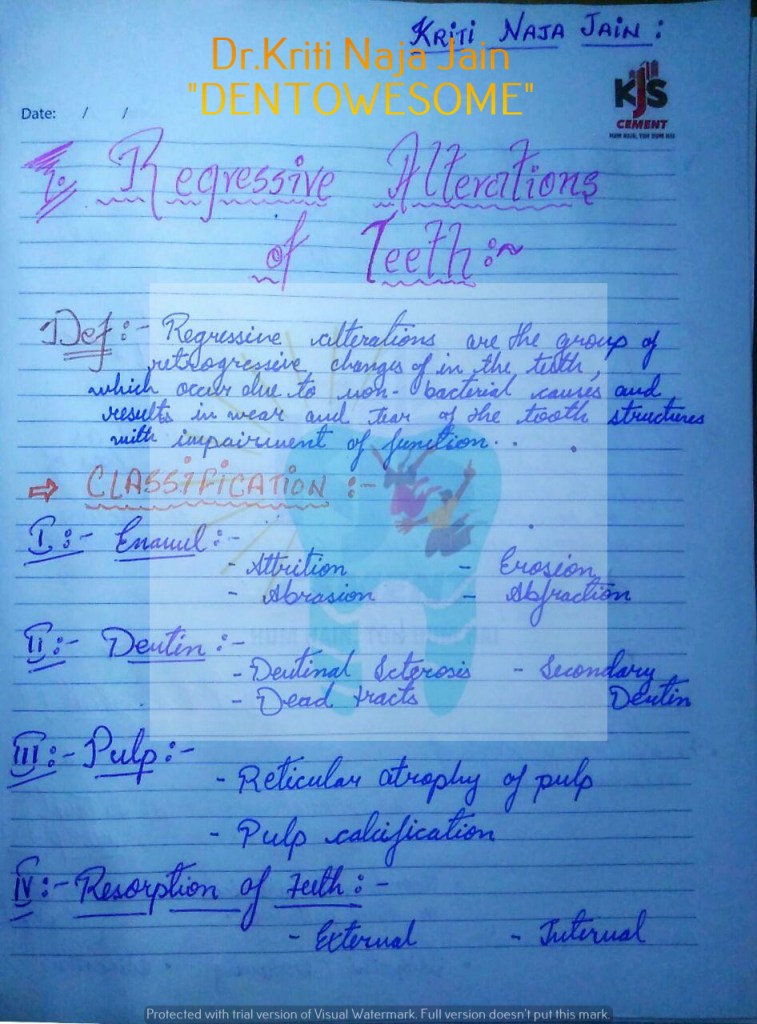 KRITI NAJA JAIN :
Dr.Kriti Naja Jain
"DENTOWESOME"
Date: / /
KJS
CEMENT
HUM HAIN, TOH HUM HAI
1: Regressive Alterations
of Teeth :~
Def :- Regressive alterations are the group of
retrogressive changes of in the teeth,
which occur due to non-bacterial causes and
results in wear and tear of the tooth structures
with impairment of function..
⇒ CLASSIFICATION :-
I :- Enamel :-
- Attrition - Erosion
- Abrasion - Abfraction
II :- Dentin :-
- Dentinal Scterosis - Secondary
- Dead tracts Dentin
III :- Pulp :-
- Reticular atrophy of pulp
- Pulp calcification
IV :- Resorption of teeth :-
- External - Internal
Protected with trial version of Visual Watermark. Full version doesn't put this mark.